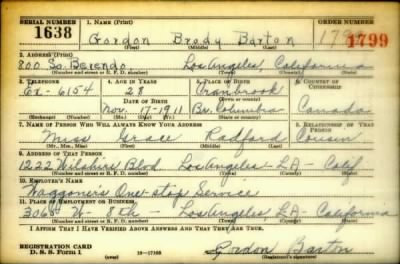 SERIAL NUMBER 1. NAME (Print) ORDER NUMBER
1638 Gordon Brody Barton 1799
(First) (Middle) (Last)
2. ADDRESS (Print)
800 So. Berendo. Los Angeles, California
(Number and street or R. F. D. number) (Town) (County) (State)
3. TELEPHONE 4. AGE IN YEARS 5. PLACE OF BIRTH 6. COUNTRY OF CITIZENSHIP
Ex - 6154 28 Cranbrook
(Town or county)
DATE OF BIRTH
Nov. 17-1911 Br. Columbia Canada
(Exchange) (Number) (Mo.) (Day) (Yr.) (State or country)
7. NAME OF PERSON WHO WILL ALWAYS KNOW YOUR ADDRESS 8. RELATIONSHIP OF THAT PERSON
Miss Grace Radford Cousin
(Mr., Mrs., Miss) (First) (Middle) (Last)
9. ADDRESS OF THAT PERSON
1222 Wilshire Blvd. Los Angeles - LA - Calif
(Number and street or R. F. D. number) (Town) (County) (State)
10. EMPLOYER'S NAME
Waggoner's One-stop Service
11. PLACE OF EMPLOYMENT OR BUSINESS
3065 W - 8th - Los Angeles, LA - California
(Number and street or R. F. D. number) (Town) (County) (State)
I AFFIRM THAT I HAVE VERIFIED ABOVE ANSWERS AND THAT THEY ARE TRUE.
REGISTRATION CARD
D. S. S. Form 1 16-17105 Gordon Barton
(over) (Registrant's signature)